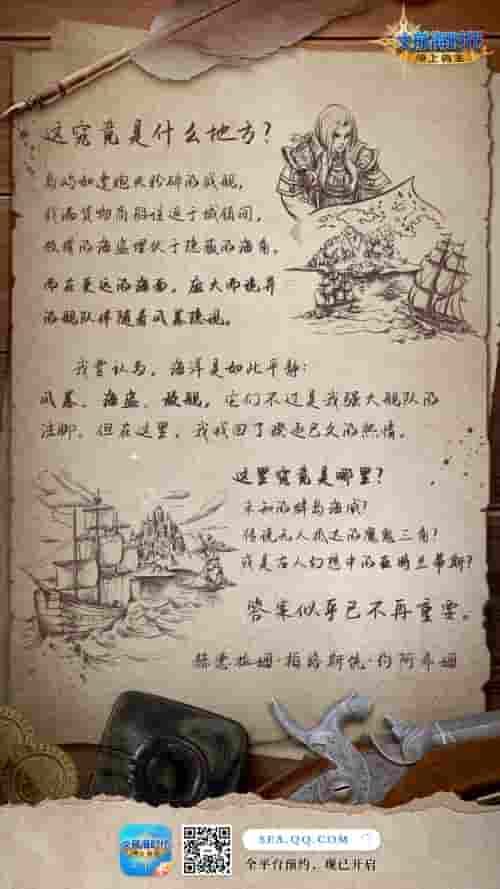 大航海时代
海上霸主
这究竟是什么地方?
岛屿如遭炮火粉碎的战舰,
载满货物商船往返于城镇间,
敌对的海盗埋伏于隐蔽的海角。
而在更远的海面,庞大而诡异
的舰队伴随着风暴隐现。
我曾认为,海洋是如此平静:
风暴、海盗、敌舰,它们不过是我强大舰队的
注脚。但在这里,我找回了褪色已久的热情。
这里究竟是哪里?
未知的群岛海域?
传说无人抵达的魔鬼三角?
或是古人幻想中的亚特兰蒂斯?
答案似乎已不再重要。
赫德拉姆·柏格斯统·约阿希姆
大航海时代
海上霸主
SEA.QQ.COM
全平台预约,现已开启